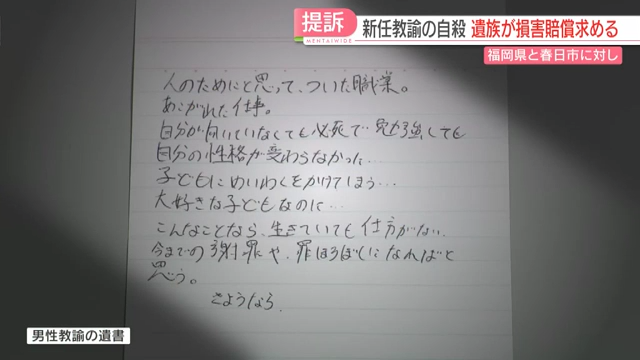 提訴
MENTAIWIDE
新任教諭の自殺 遺族が損害賠償求める
福岡県と春日市に対し
人のためにと思って、ついた職業。
あこがれた仕事。
自分が向いていなくても必死で勉強しても
自分の性格が変わらなかった…
子どもにめいわくをかけてしまう…
大好きな子どもなのに…
こんなことなら、生きていても仕方がない.
今までの謝罪や、罪ほろぼしになればと
思う。
さようなら.
男性教諭の遺書